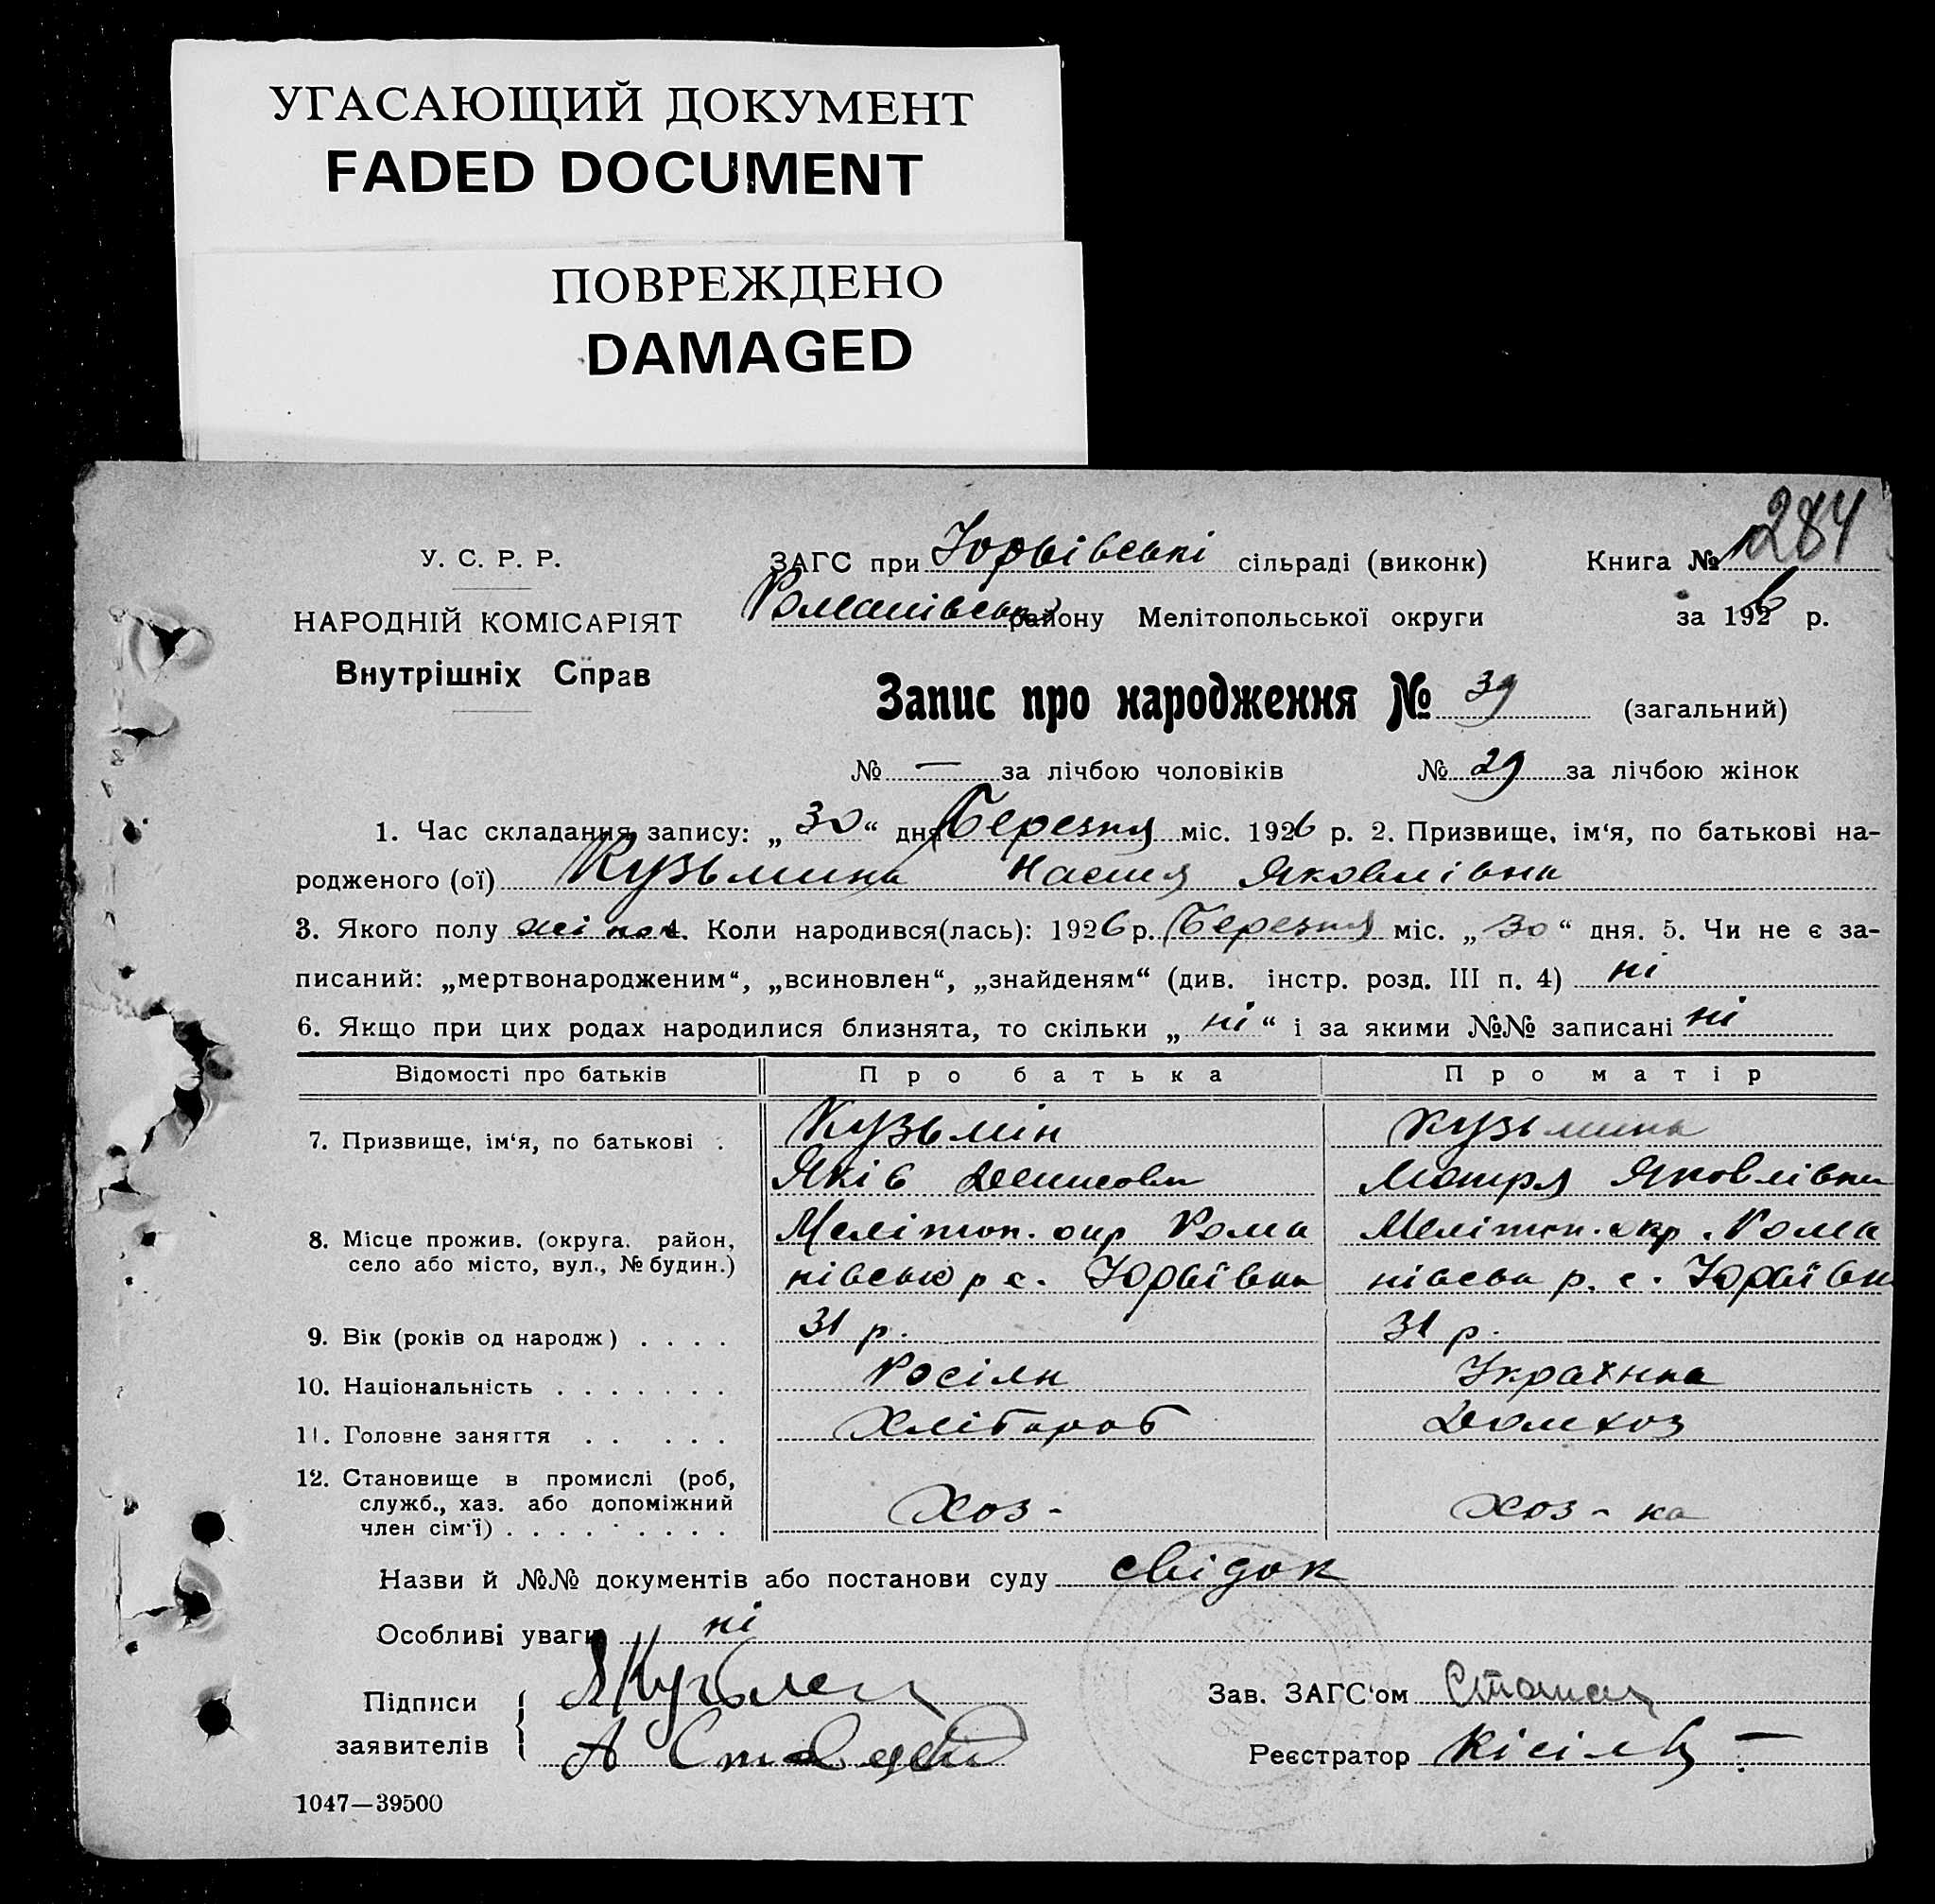 УГАСАЮЩИЙ ДОКУМЕНТ
FADED DOCUMENT
ПОВРЕЖДЕНО
DAMAGED
284
У. С. Р. Р.
НАРОДНІЙ КОМІСАРІЯТ
Внутрішніх Справ
ЗАГС при Юрьівські сільраді (виконк) Книга №
Романівськ району Мелітопольської округи за 1926 р.
Запис про народження № 39 (загальний)
№ — за лічбою чоловіків № 29 за лічбою жінок
1. Час складання запису: „ 30 “ дня Березня міс. 1926 р. 2. Призвище, ім‘я, по батькові на-
родженого (ої) Кузьмина Настя Яковлівна
3. Якого полу жіноч 4. Коли народився(лась): 1926 р. Березня міс. „ 30 “ дня. 5. Чи не є за-
писаний: „мертвонародженим“, „всиновлен“, „знайденям“ (див. інстр. розд. III п. 4) ні
6. Якщо при цих родах народилися близнята, то скільки „ ні “ і за якими №№ записані ні
Відомості про батьків Про батька Про матір
7. Призвище, ім‘я, по батькові . Кузьмін Кузьмина
Яків Денисови Мотря Яковлівна
8. Місце прожив. (округа. район, село або місто, вул., № будин.) Меліт​оп. окр Рома Мелітоп. окр. Рома
нівсько р с. Юрьївка нівська р. с. Юрьївка
9. Вік (років од народж) . . . . 31 р. 31 р.
10. Національність . . . . . . . Росіян Українка
11. Головне заняття . . . . . Хлібороб Домхоз
12. Становище в промислі (роб,
служб., хаз. або допоміжний
член сім‘ї) . . . . . . . . . Хоз- Хоз-ка
Назви й №№ документів або постанови суду свідок
Особливі уваги ні
Підписи
заявителів
Зав. ЗАГС‘ом
Реєстратор
1047—39500